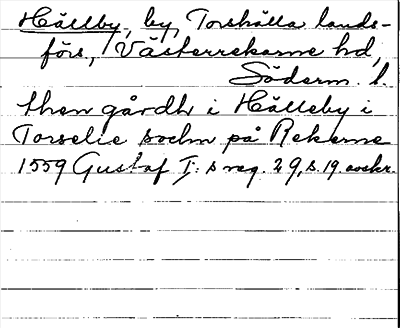 Hällby, by, Torshälla lands-
förs., Västerrekarne hd,
Söderm. l.
then gårdh i Hälleby i
Torselie sochn på Rekarne
1559 Gustaf I:s reg. 29, s. 19. avskr.